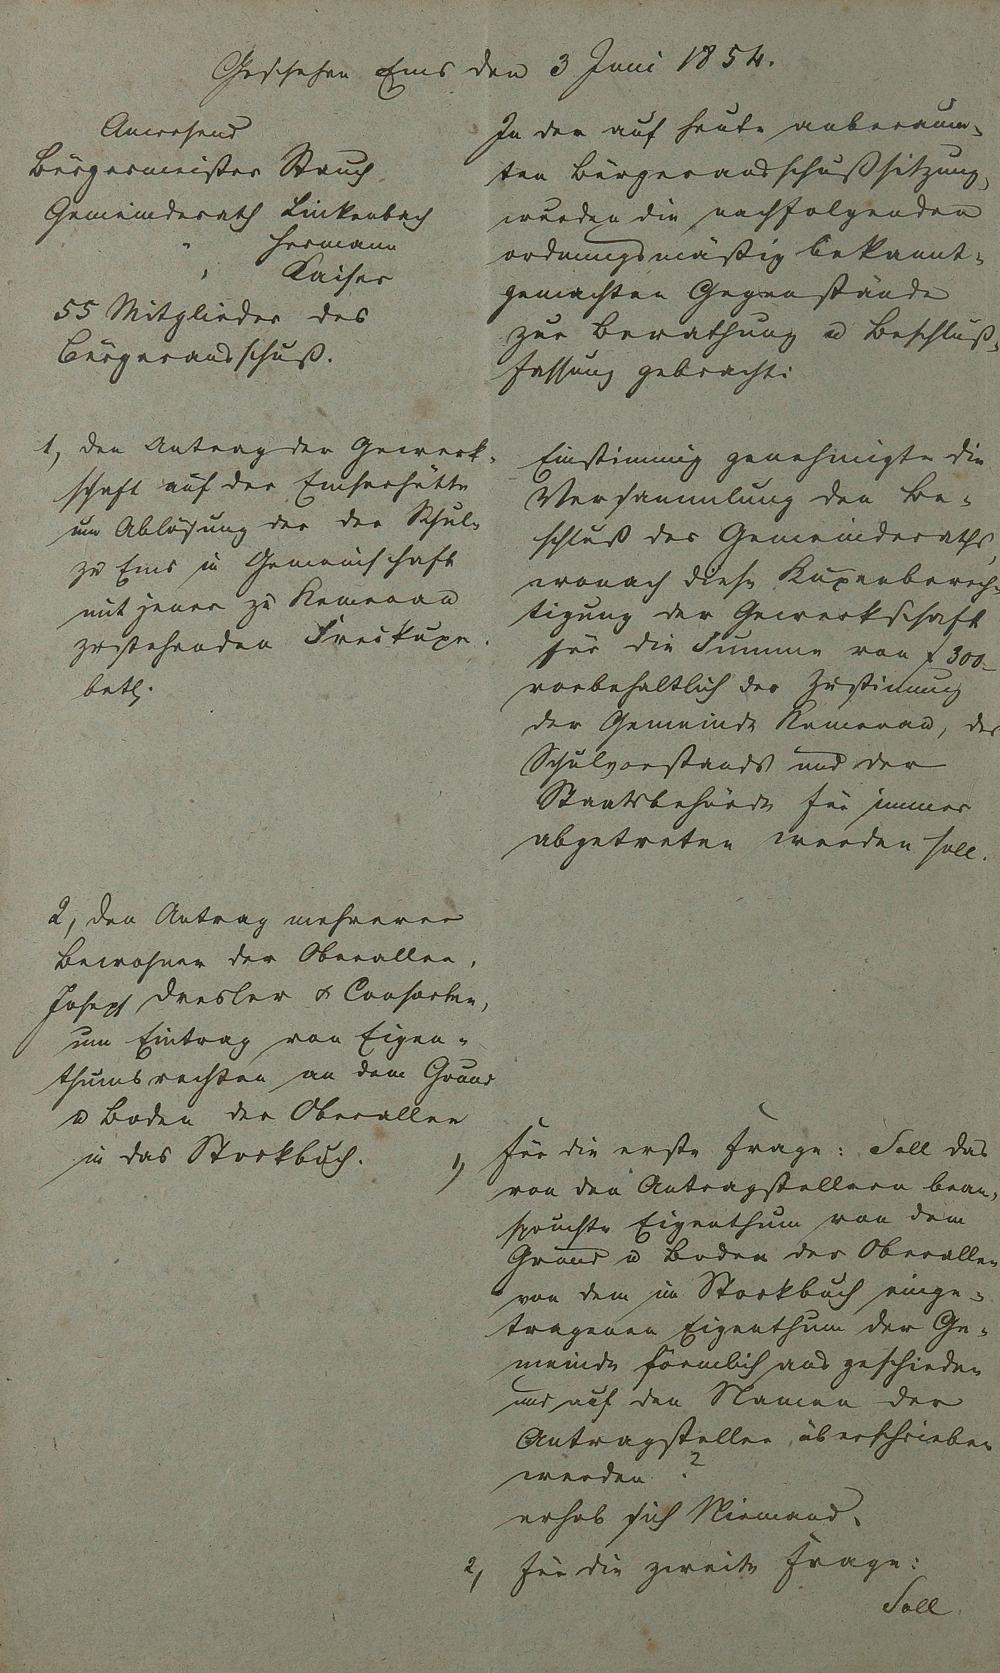 Geschehen Ems den 3 Juni 1854.
Anwesend
Bürgermeister Stauch
Gemeinderath Linkenbach
" Hermann
" Kaiser
55 Mitglieder des
Bürgerausschuß.
In der auf heute anberaum-
ten Bürgerausschußsitzung,
wurden die nachfolgenden
ordnungsmäßig bekannt-
gemachten Gegenstände
zur Berathung u Beschluß-
fassung gebracht:
1, den Antrag der Gewerk-
schaft auf der Emserhütte
um Ablösung der der Schule
zu Ems in Gemeinschaft
mit jener zu Kemenau
zustehenden Freikuxe.
betr.
Einstimmig genehmigte die
Versammlung den Be-
schluß des Gemeinderaths,
wonach diese Kuxenberech-
tigung der Gewerkschaft
für die Summe von f 300-
vorbehaltlich der Zustimmung
der Gemeinde Kemenau, des
Schulvorstands und der
Staatsbehörde für immer
abgetreten werden soll.
2, den Antrag mehrerer
Bewohner der Oberallee,
Joseph Dresler & Consorten,
um Eintrag von Eigen-
thumsrechten an dem Grund
u Boden der Oberallee
in das Stockbuch.
1, Für die erste Frage: Soll das
von den Antragstellern bean-
spruchte Eigenthum von dem
Grund u Boden der Oberallee
von dem im Stockbuch einge-
tragenen Eigenthum der Ge-
meinde förmlich ausgeschieden
und auf den Namen der
Antragsteller überschrieben
werden?
erhob sich Niemand.
2, Für die zweite Frage:
Soll